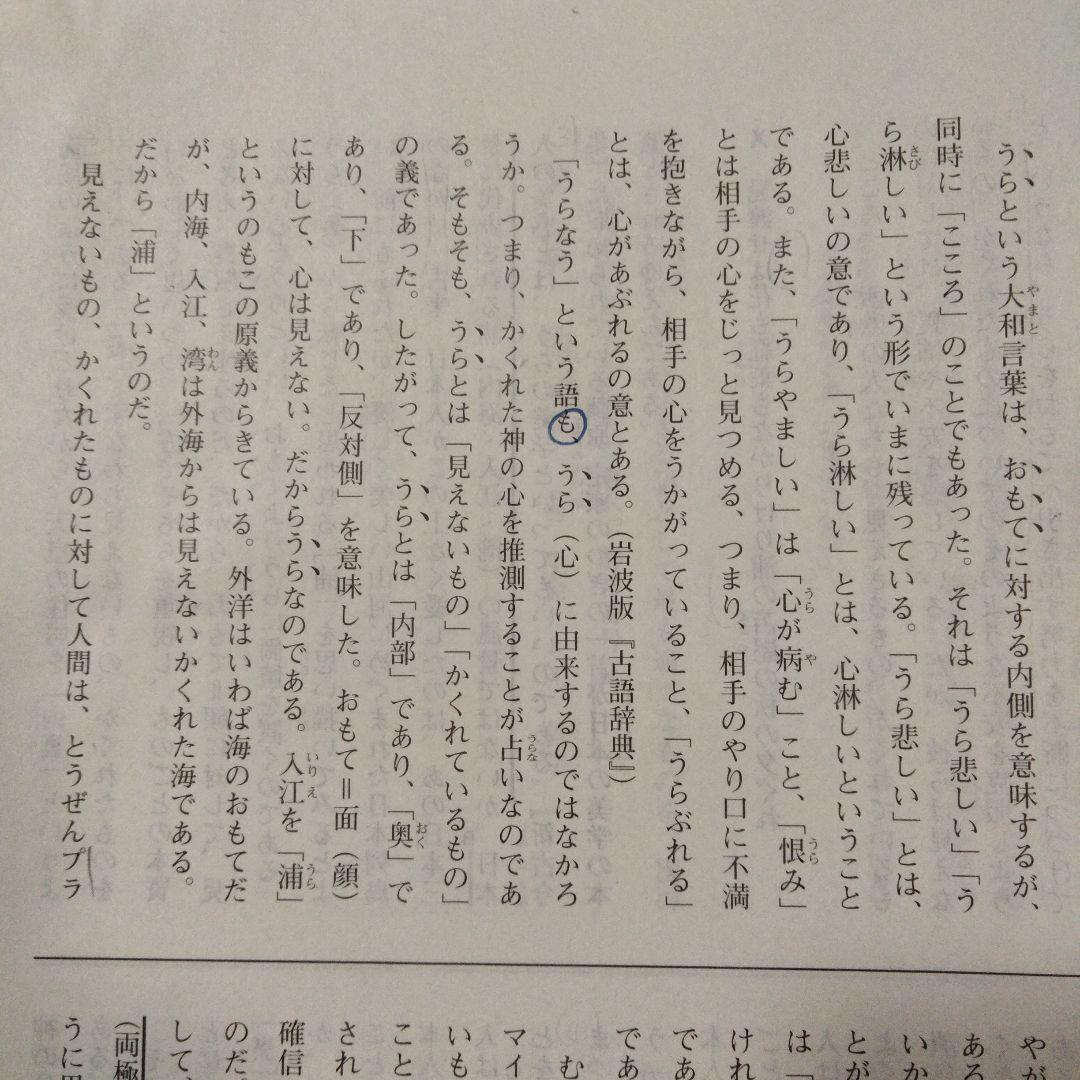 うらという大和言葉は、おもてに対する内側を意味するが、
同時に「こころ」のことでもあった。それは「うら悲しい」「う
ら淋しい」という形でいまに残っている。「うら悲しい」とは、
心悲しいの意であり、「うら淋しい」とは、心淋しいということ
である。また、「うらやましい」は「心が病む」こと、「恨み」
とは相手の心をじっと見つめる、つまり、相手のやり口に不満
を抱きながら、相手の心をうかがっていること、「うらぶれる」
とは、心があぶれるの意とある。（岩波版『古語辞典』）
「うらなう」という語も、うら（心）に由来するのではなかろ
うか。つまり、かくれた神の心を推測することが占いなのであ
る。そもそも、うらとは「見えないもの」「かくれているもの」
の義であった。したがって、うらとは「内部」であり、「奥」で
あり、「下」であり、「反対側」を意味した。おもて＝面（顔）
に対して、心は見えない。だからうらなのである。入江を「浦」
というのもこの原義からきている。外洋はいわば海のおもてだ
が、内海、入江、湾は外海からは見えないかくれた海である。
だから「浦」というのだ。
見えないもの、かくれたものに対して人間は、とうぜんプラ
やが
ある
いか
とが
は「
けれ
であ
であ
む
マイ
いも
こと
され
確信
のだ。
して、
（両極
うに